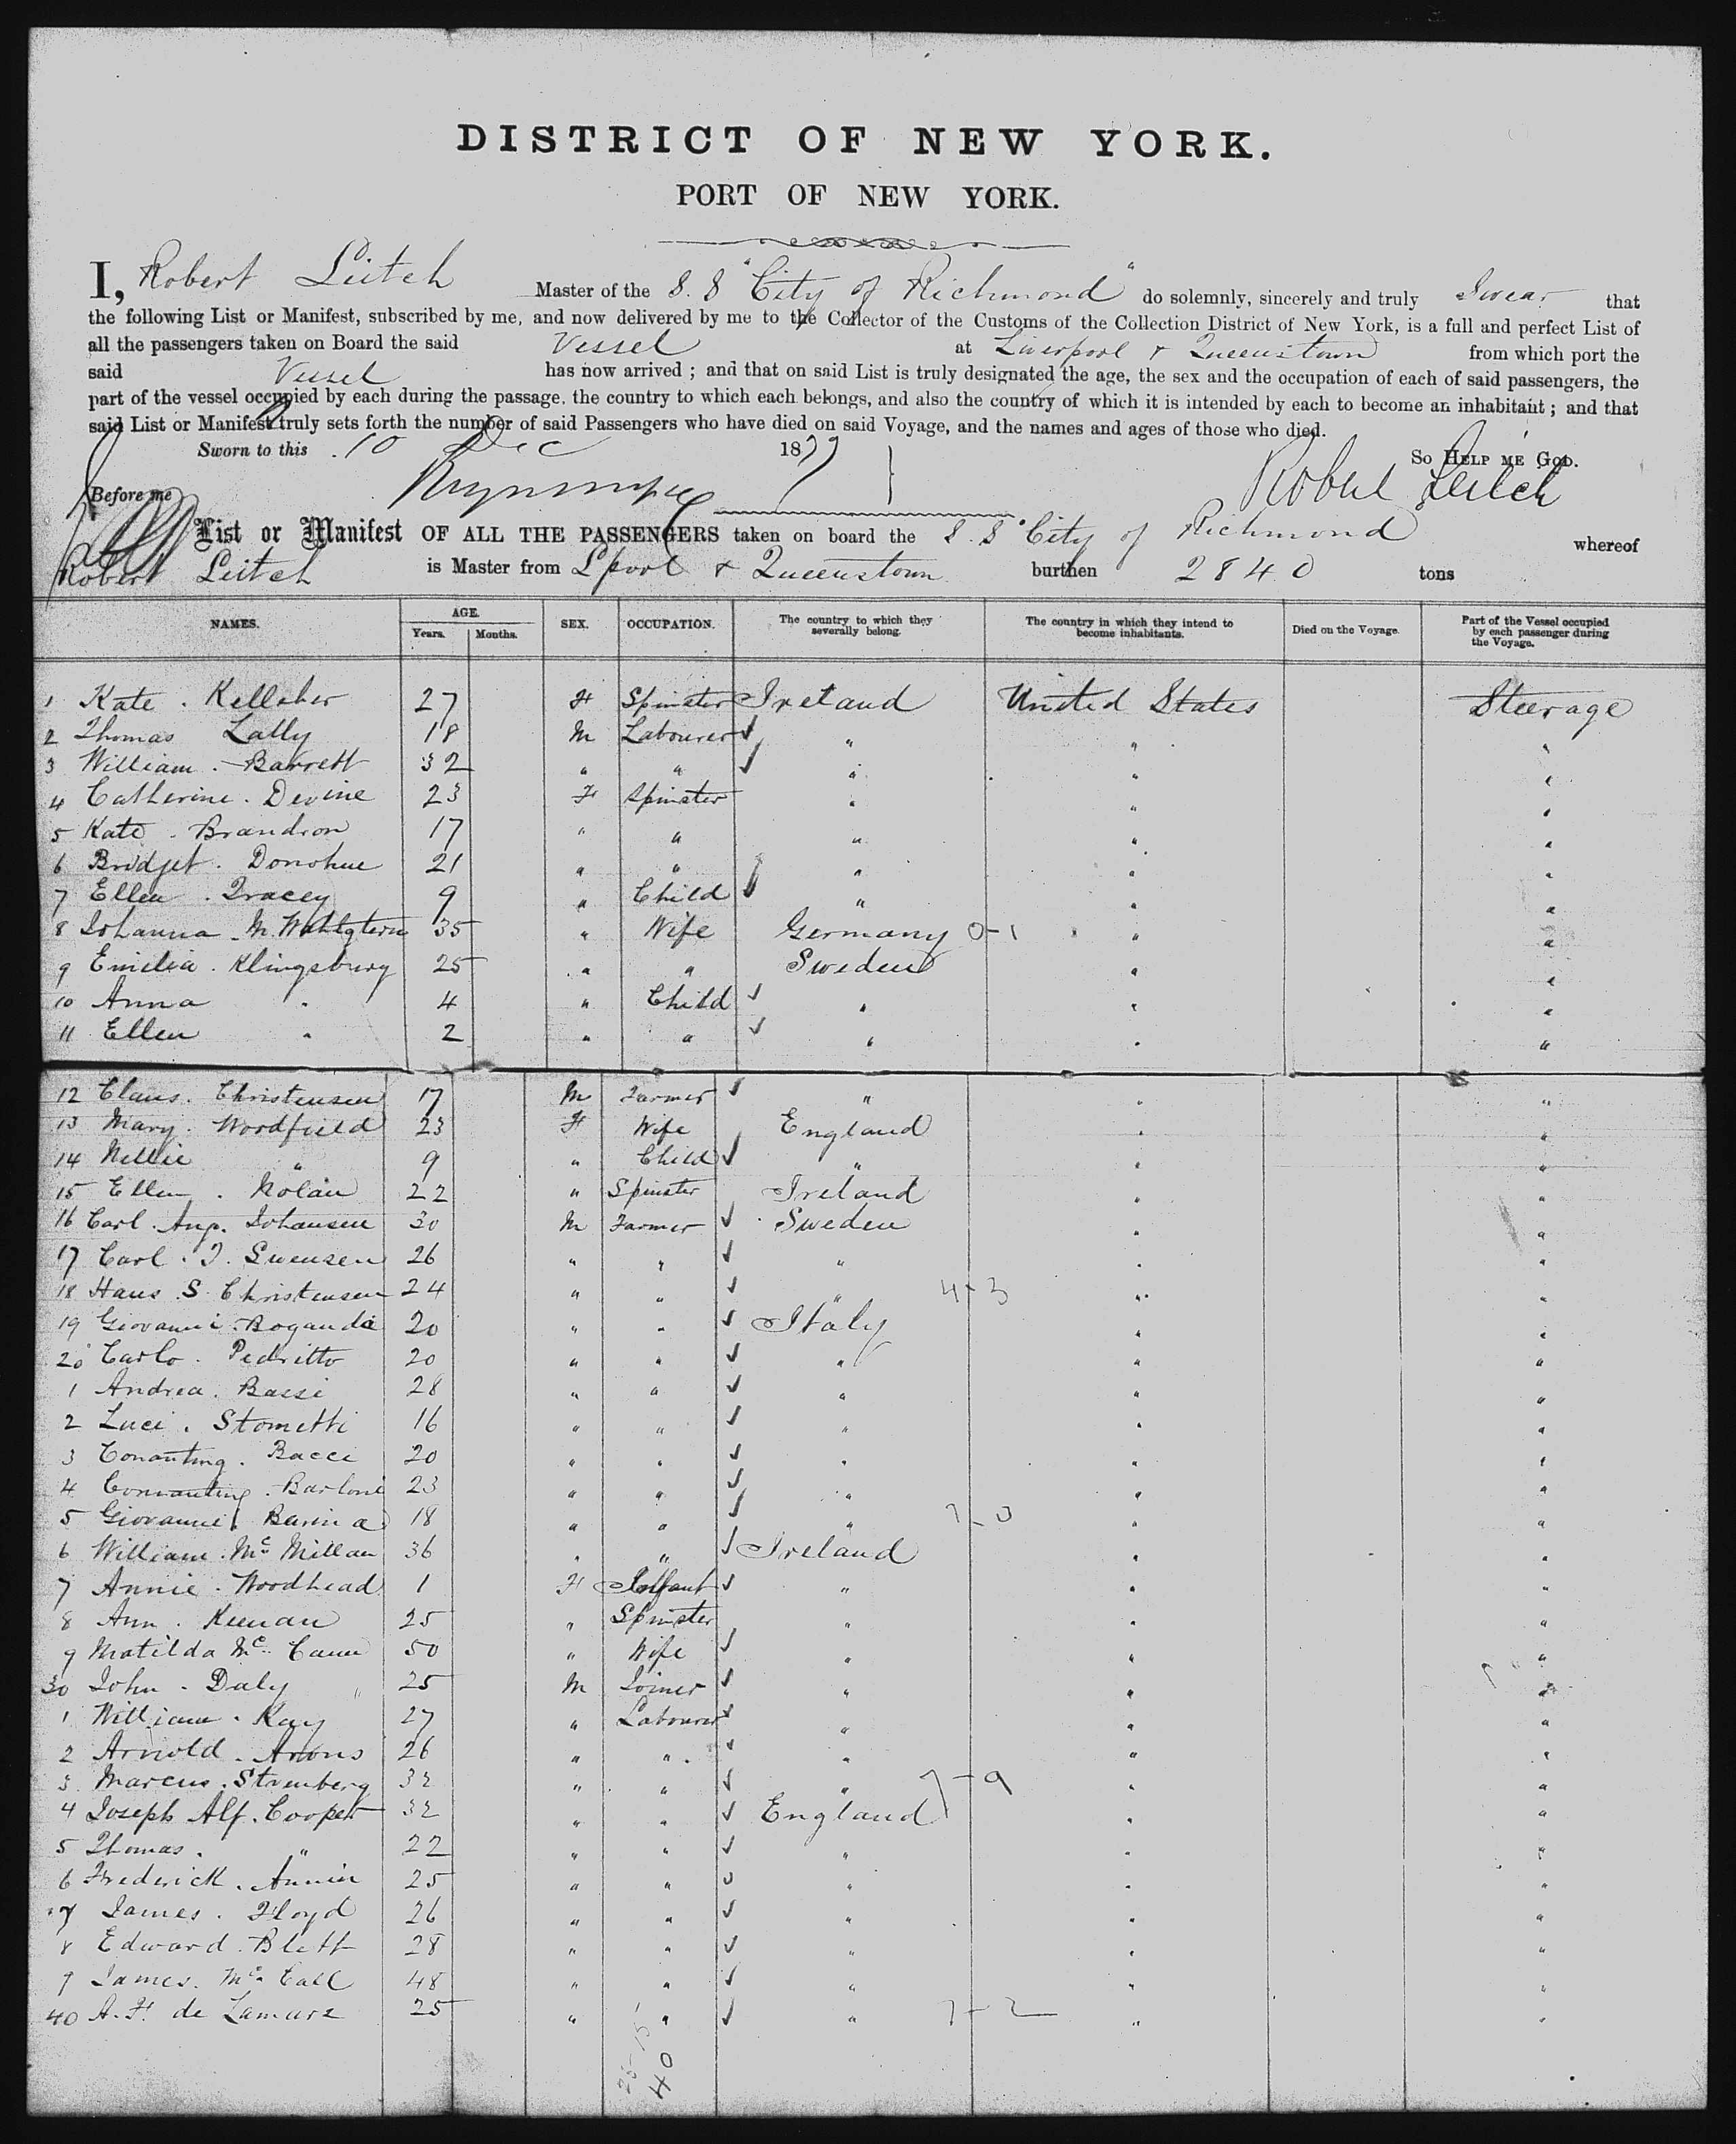 DISTRICT OF NEW YORK.
PORT OF NEW YORK.
I, Robert Leitch Master of the S. S "City of Richmond" do solemnly, sincerely and truly Swear that
the following List or Manifest, subscribed by me, and now delivered by me to the Collector of the Customs of the Collection District of New York, is a full and perfect List of
all the passengers taken on Board the said Vessel at Liverpool & Queenstown from which port the
said Vessel has now arrived ; and that on said List is truly designated the age, the sex and the occupation of each of said passengers, the
part of the vessel occupied by each during the passage, the country to which each belongs, and also the country of which it is intended by each to become an inhabitant ; and that
said List or Manifest truly sets forth the number of said Passengers who have died on said Voyage, and the names and ages of those who died.
Sworn to this 10 Dec 1877 So HELP ME GOD.
Before me Robert Leitch
List or Manifest OF ALL THE PASSENGERS taken on board the S. S "City of Richmond whereof
Robert Leitch is Master from Lpool & Queenstown burthen 2840 tons
NAMES. AGE. Years. Months. SEX. OCCUPATION. The country to which they severally belong. The country in which they intend to become inhabitants. Died on the Voyage. Part of the Vessel occupied by each passenger during the Voyage.
1 Kate . Kelleher 27 F Spinster Ireland United States Steerage
2 Thomas Lally 18 M Labourer " " "
3 William . Barrett 32 " " " " "
4 Catherine . Devine 23 F Spinster " " "
5 Kate . Brandron 17 " " " " "
6 Bridget . Donohue 21 " " " " "
7 Ellen . Tracey 9 " Child " " "
8 Johanna M. 35 " Wife Germany 0-1 " "
9 Emilia . Klingsburg 25 " " Sweden " "
10 Anna " 4 " Child " " "
11 Ellen " 2 " " " " "
12 Claus . Christensen 17 M Farmer " " "
13 Mary . Woodfield 23 F Wife England " "
14 Nellie " 9 " Child " " "
15 Ellen . Nolan 22 " Spinster Ireland " "
16 Carl . Aug. Johansen 30 M Farmer Sweden " "
17 Carl . J. Swensen 26 " " " " "
18 Hans S. Christensen 24 " " " 4-3 " "
19 Giovanni . Boganda 20 " " Italy " "
20 Carlo . Pedritto 20 " " " " "
1 Andrea . Bassi 28 " " " " "
2 Luci . Stometti 16 " " " " "
3 . Bacci 20 " " " " "
4 . Barloni 23 " " " " "
5 Giovanni 18 " " " " "
6 William . Mc Millan 36 " " Ireland " "
7 Annie . Woodhead 1 F Infant " " "
8 Ann . Keenan 25 " Spinster " " "
9 Matilda Mc Cann 50 " Wife " " "
30 John . Daly 25 M Joiner " " "
1 William . Kay 27 " Labourer " " "
2 Arnold . Arons 26 " " " " "
3 Marcus . Stromberg 32 " " " 7-9 " "
4 Joseph Alf. Cooper 32 " " England " "
5 Thomas . " 22 " " " " "
6 Frederick . 25 " " " " "
7 James . Floyd 26 " " " " "
8 Edward . Blett 28 " " " " "
9 James . Mc Call 48 " " " " "
40 A. F. de Lamare 25 " " " 7-2 " "
25-15
40